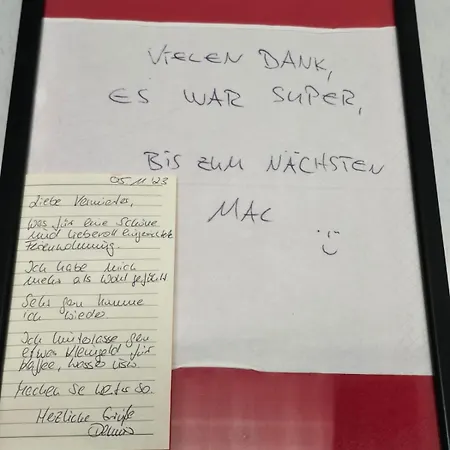 VIELEN DANK,
ES WAR SUPER,
BIS ZUM NÄCHSTEN
MAL
:)
05.11.23
Liebe Vermieter,
was für eine schöne
und liebevoll eingerichtete
Ferienwohnung.
Ich habe mich
mehr als wohl gefühlt
Sehr gern komme
ich wieder
Ich hinterlasse gern
etwas Kleingeld für
Kaffee, Wasser usw.
Machen Sie weiter so.
Herzliche Grüße